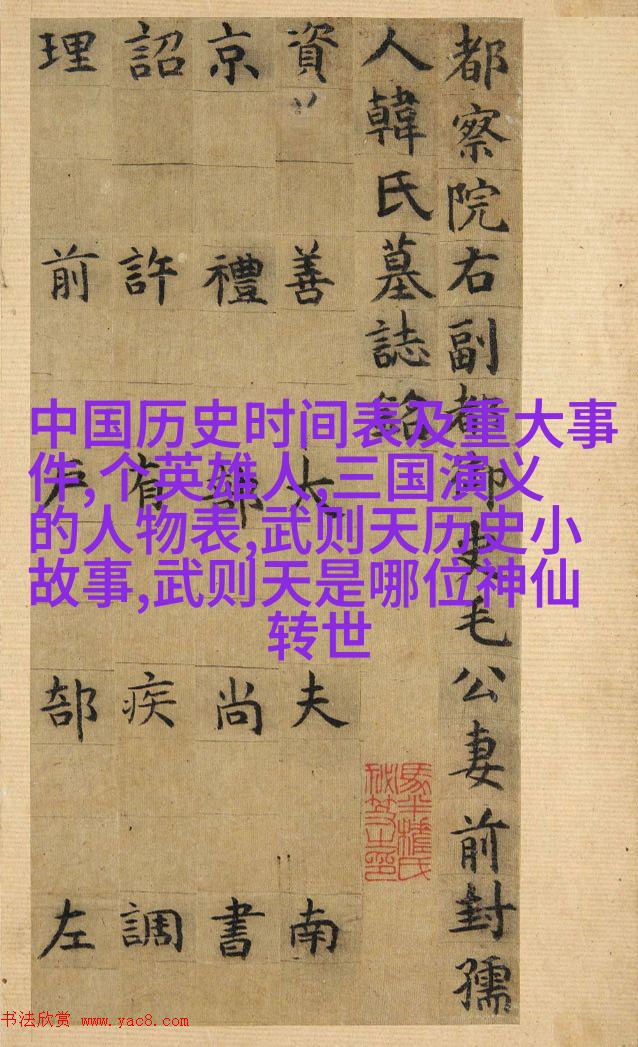 都察院右副都御史毛公妻前封孺
人韓氏墓誌銘
資善大夫南
京禮部尚書
詔許有疾調
理前戶部左
中国历史时间表及重大事
件,个英雄人,三国演义
的人物表,武则天历史小
故事,武则天是哪位神仙
转世
书法欣赏 www.yac8.com